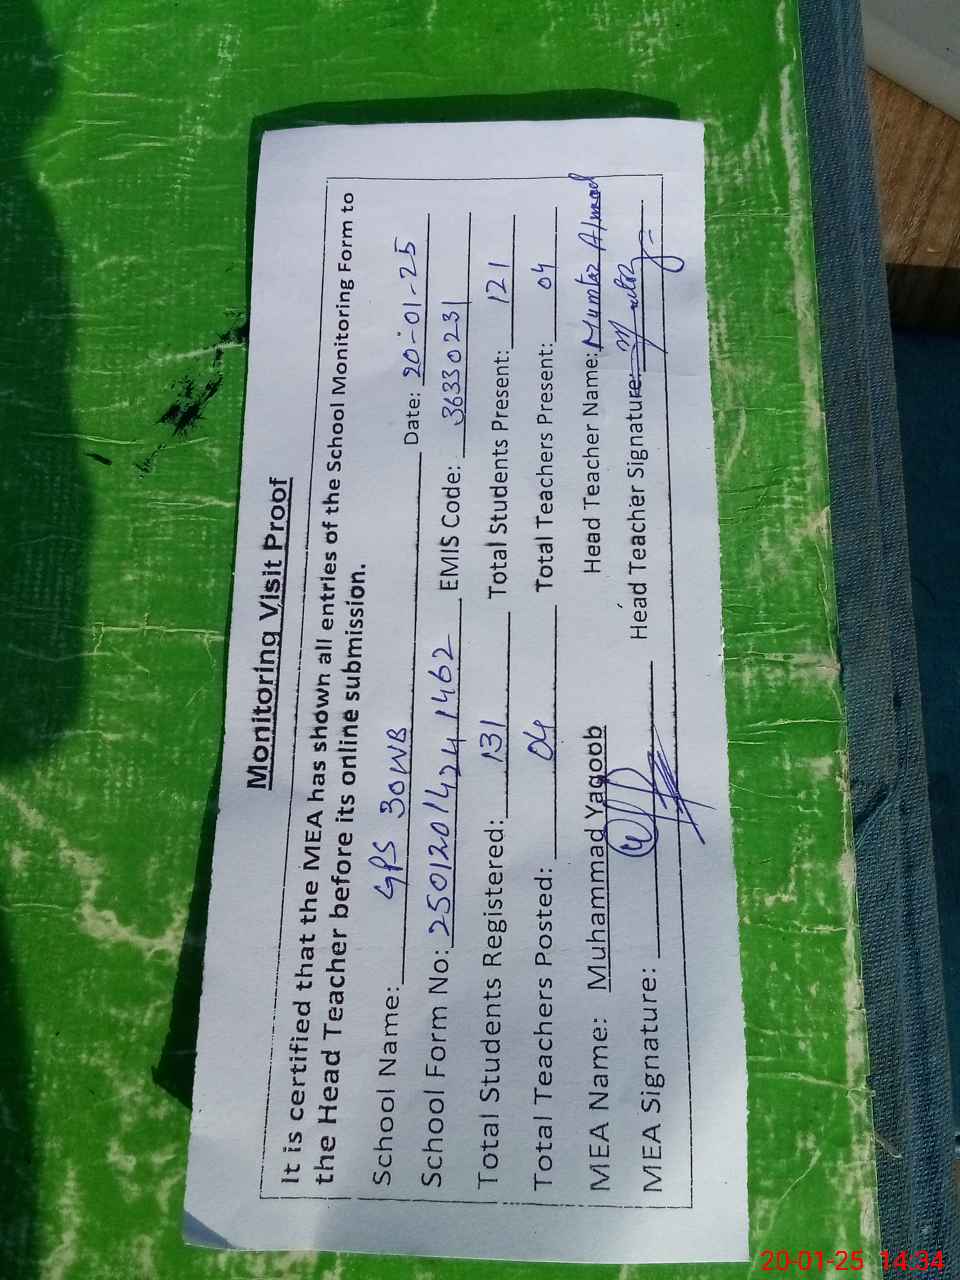 Monitoring Visit Proof
It is certified that the MEA has shown all entries of the School Monitoring Form to
the Head Teacher before its online submission.
School Name: GPS 30WB Date: 20-01-25
School Form No: 2501201424 1462 EMIS Code: 36330231
Total Students Registered: 131 Total Students Present: 121
Total Teachers Posted: 04 Total Teachers Present: 04
MEA Name: Muhammad Yaqoob Head Teacher Name: Mumtaz Ahmad
MEA Signature: Head Teacher Signature:
20-01-25 14:34